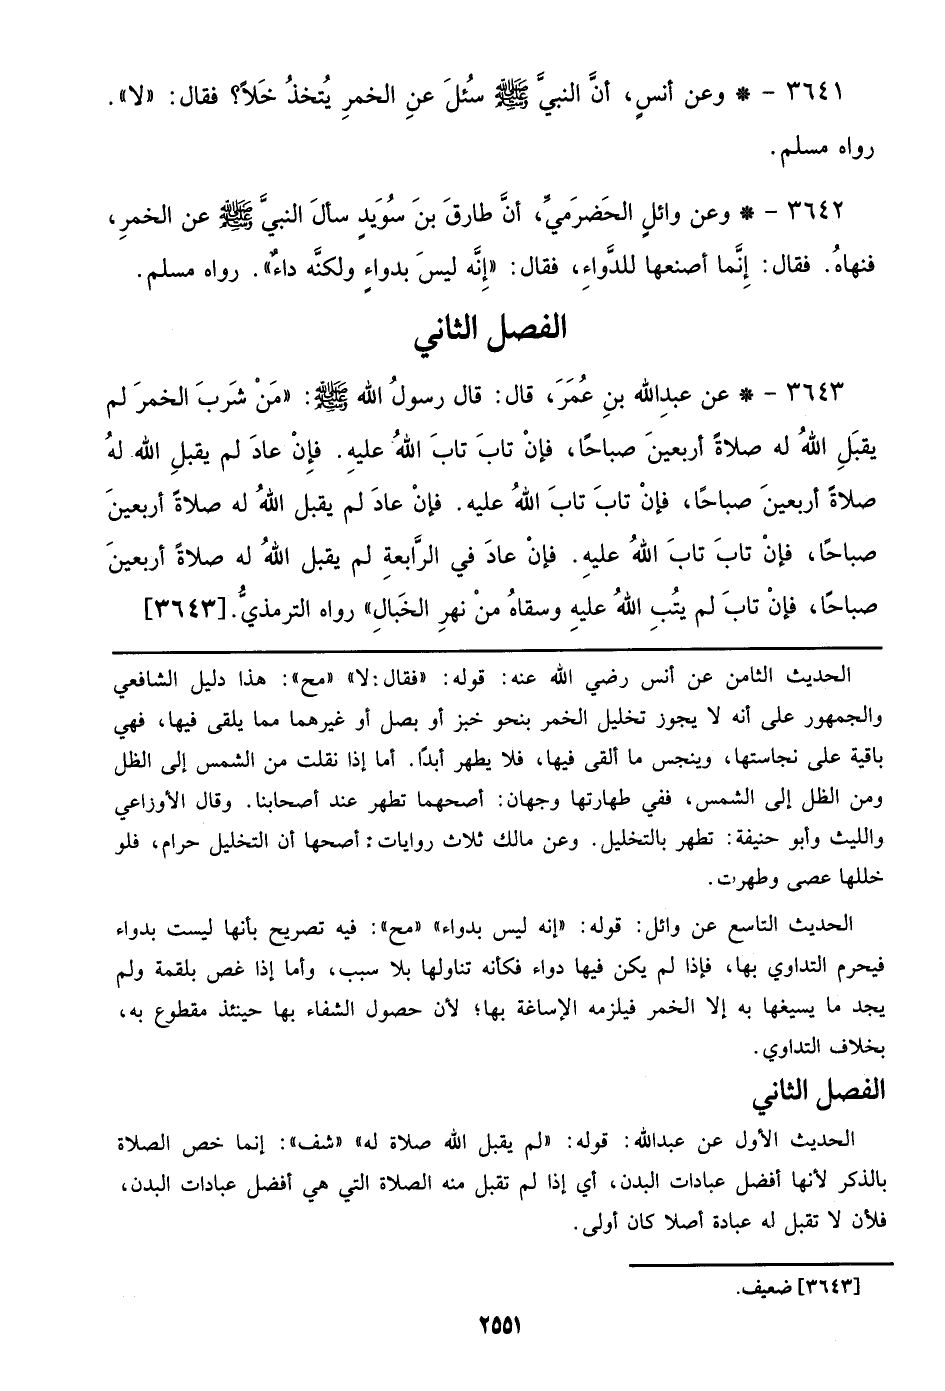 ٣٦٤١ – * وعن أنسٍ، أنَّ النبيَّ ﷺ سُئلَ عنِ الخمرِ يُتخذُ خَلاً؟ فقال: «لا».
رواه مسلم.
٣٦٤٢ – * وعن وائلٍ الحَضرَميِّ، أنَّ طارقَ بنَ سُوَيَدٍ سألَ النبيَّ ﷺ عن الخمرِ،
فنهاهُ. فقال: إِنَّما أصنعها للدَّواءِ، فقال: «إِنَّه ليسَ بدواءٍ ولكنَّه داءٌ». رواه مسلم.
الفصل الثاني
٣٦٤٣ – * عن عبدِالله بنِ عُمَرَ، قال: قال رسولُ الله ﷺ: «مَنْ شَربَ الخمرَ لم
يقبَلِ اللهُ له صلاةً أربعينَ صباحًا، فإنْ تابَ تابَ اللهُ عليهِ. فإِنْ عادَ لم يقبلِ الله لهُ
صلاةً أربعينَ صباحًا، فإنْ تابَ تابَ اللهُ عليه. فإنْ عادَ لم يقبل اللهُ له صلاةً أربعينَ
صباحًا، فإنْ تابَ تابَ اللهُ عليهِ. فإنْ عادَ في الرَّابعةِ لم يقبل اللهُ له صلاةً أربعينَ
صباحًا، فإنْ تابَ لم يتُبِ اللهُ عليهِ وسقاهُ منْ نهرِ الخَبالِ» رواه الترمذيُّ.[٣٦٤٣]
الحديث الثامن عن أنس رضي الله عنه: قوله: «فقال:لا» «مح»: هذا دليل الشافعي
والجمهور على أنه لا يجوز تخليل الخمر بنحو خبز أو بصل أو غيرهما مما يلقى فيها، فهي
باقية على نجاستها، وينجس ما ألقى فيها، فلا يطهر أبدًا. أما إذا نقلت من الشمس إلى الظل
ومن الظل إلى الشمس، ففي طهارتها وجهان: أصحهما تطهر عند أصحابنا. وقال الأوزاعي
والليث وأبو حنيفة: تطهر بالتخليل. وعن مالك ثلاث روايات: أصحها أن التخليل حرام، فلو
خللها عصى وطهرت.
الحديث التاسع عن وائل: قوله: «إنه ليس بدواء» «مح»: فيه تصريح بأنها ليست بدواء
فيحرم التداوي بها، فإذا لم يكن فيها دواء فكأنه تناولها بلا سبب، وأما إذا غص بلقمة ولم
يجد ما يسيغها به إلا الخمر فيلزمه الإساغة بها؛ لأن حصول الشفاء بها حينئذ مقطوع به،
بخلاف التداوي.
الفصل الثاني
الحديث الأول عن عبدالله: قوله: «لم يقبل الله صلاة له» «شف»: إنما خص الصلاة
بالذكر لأنها أفضل عبادات البدن، أي إذا لم تقبل منه الصلاة التي هي أفضل عبادات البدن،
فلأن لا تقبل له عبادة أصلا كان أولى.
[٣٦٤٣] ضعيف.
٢٥٥١